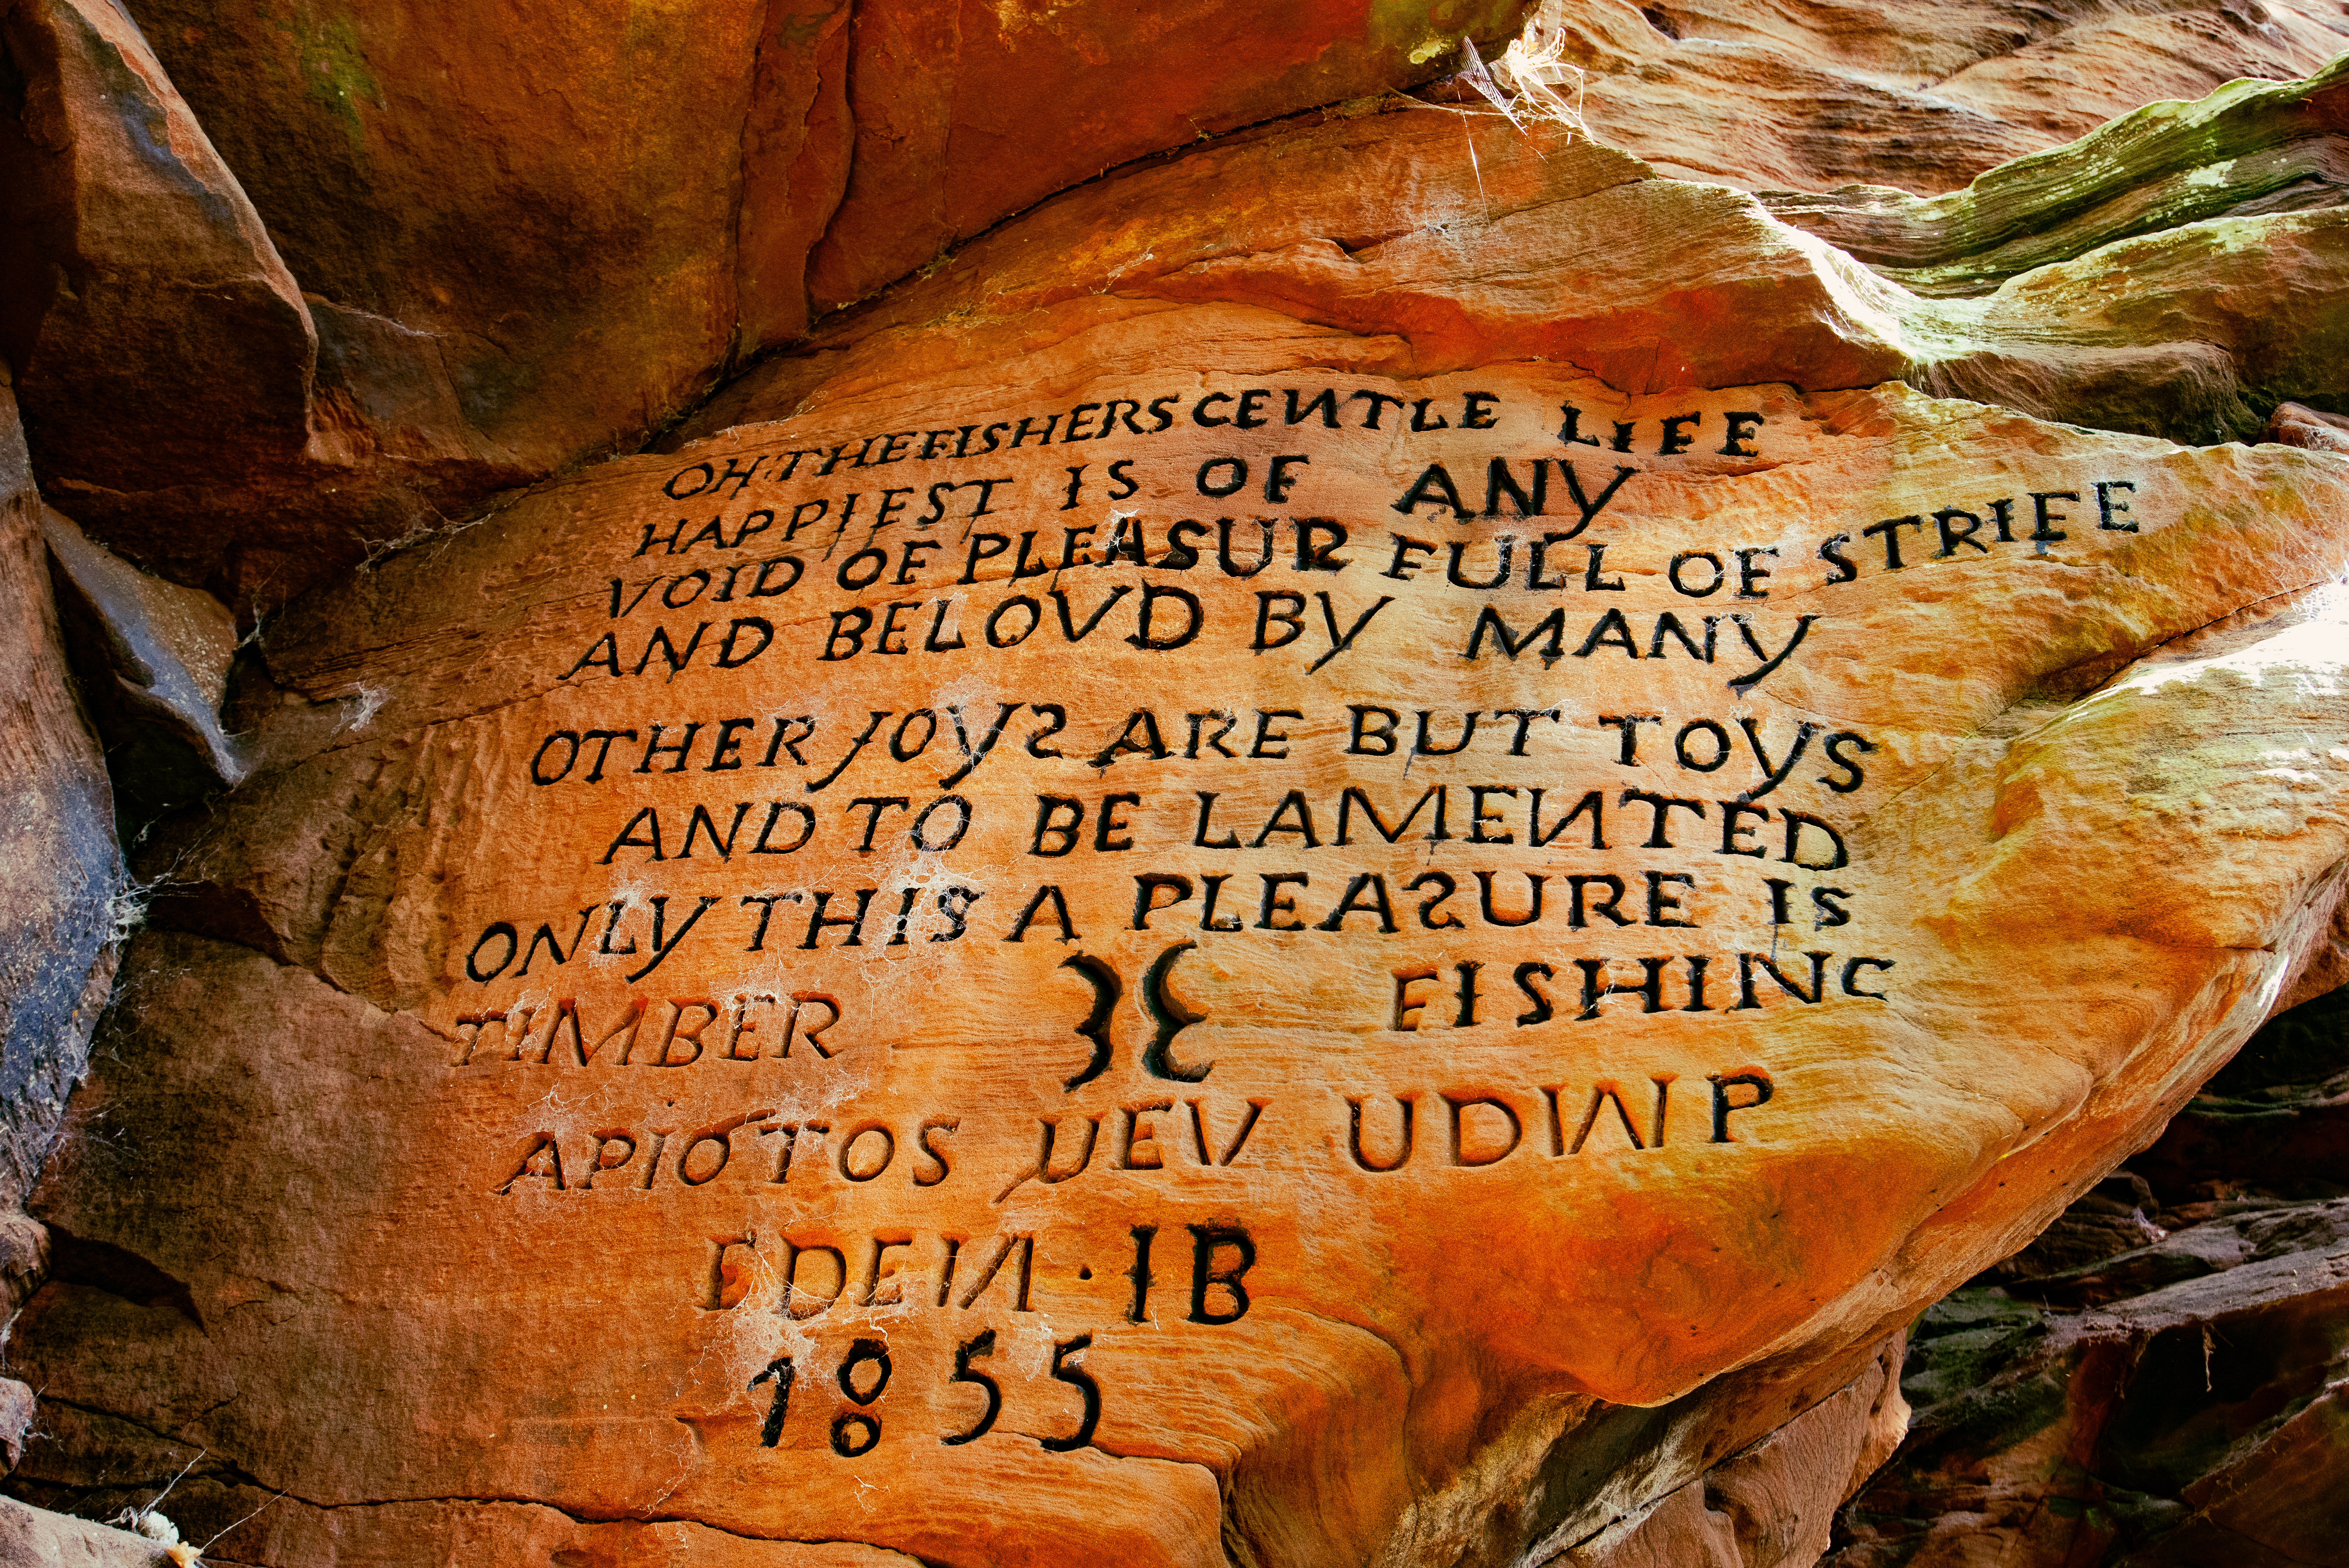 OH·THE FISHERS GENTLE LIFE
HAPPIEST IS OF ANY
VOID OF PLEASUR FULL OF STRIFE
AND BELOVD BY MANY
OTHER JOYS ARE BUT TOYS
AND TO BE LAMENTED
ONLY THIS A PLEASURE IS
TIMBER FISHING
APIOTOS UEV UDWP
EDEN · IB
1855